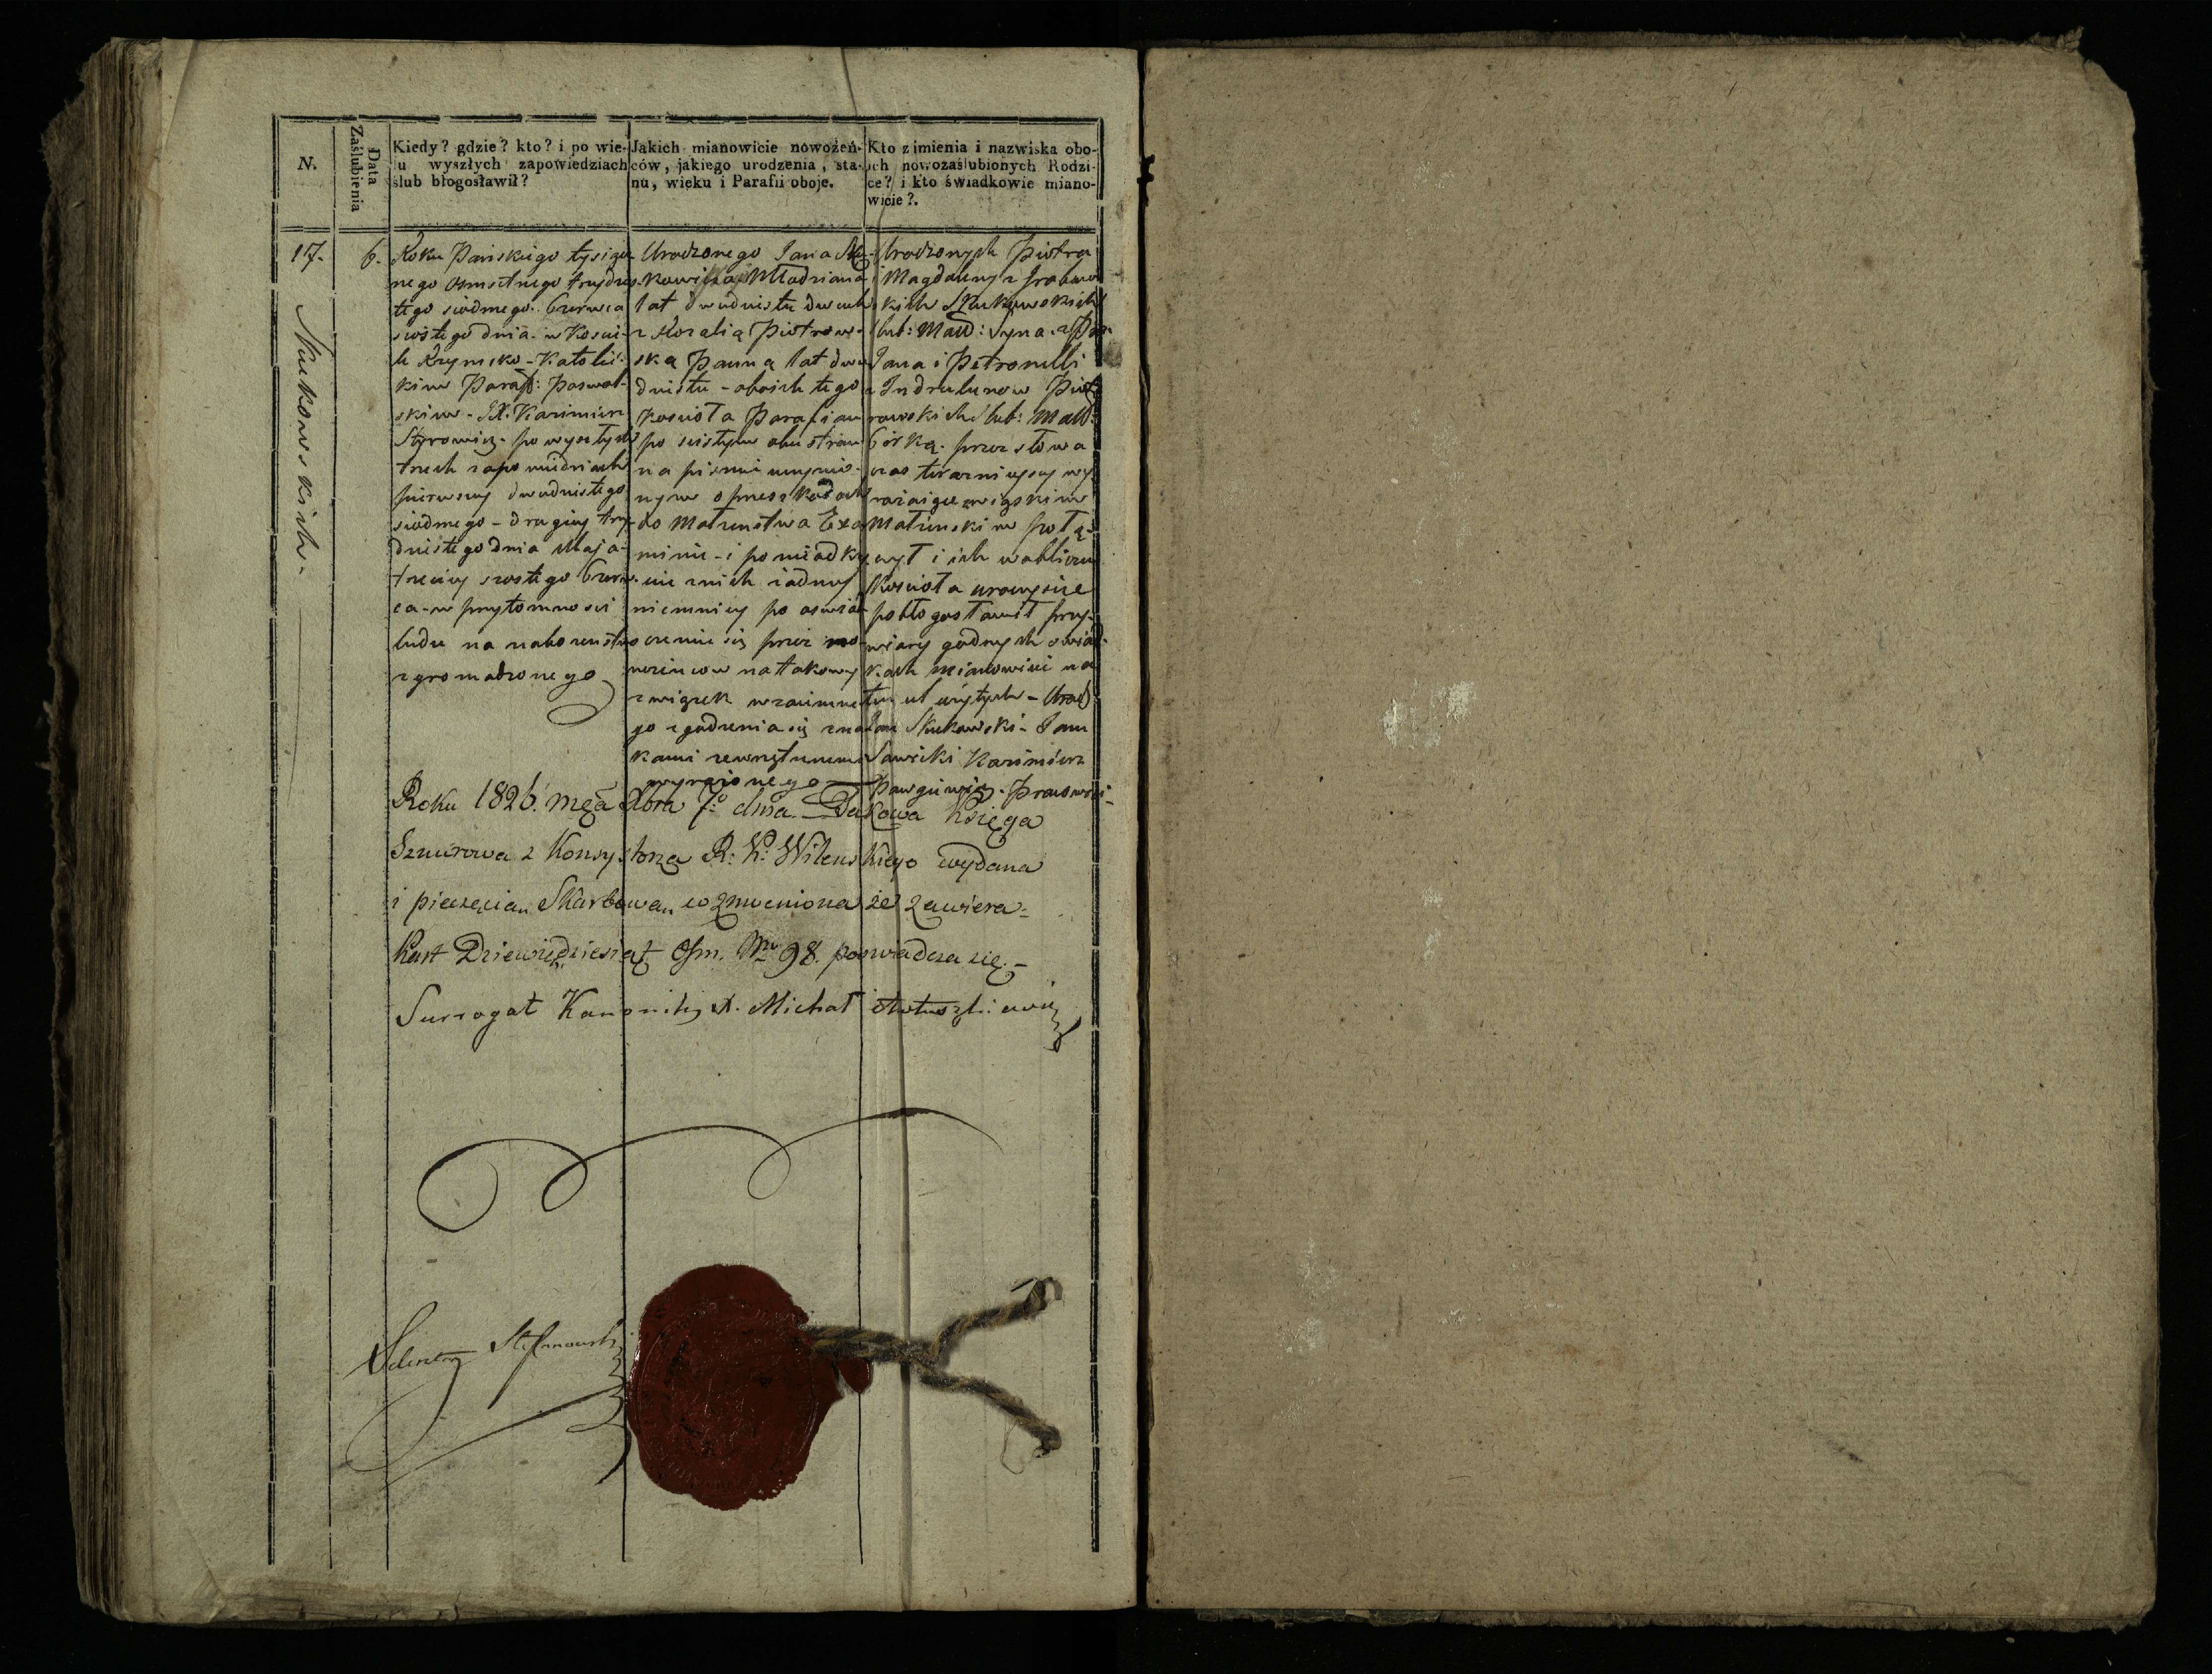 N.
Data
Zaślubienia
Kiedy? gdzie? kto? i po wie-
lu wyszłych zapowiedziach
ślub błogosławił?
Jakich mianowicie nowożeń-
ców, jakiego urodzenia, sta-
nu, wieku i Parafii oboje.
Kto z imienia i nazwiska obo-
ich nowozaślubionych Rodzi-
ce? i kto świadkowie miano-
wicie?.
17.
6.
Roku Pańskiego tysiąc
nego osmsetnego trzydzies
tego siodmego. Czerwca
szostego dnia. w Koscie-
le Rzymsko-Katolic-
kim Paraff: Poswol-
skim. JX. Kazimierz
po wyszłych
trzech zapowiedziach
pierwszey dwudziestego
siodmego - drugiey trzy-
dziestego dnia Maja
trzeciey szostego Czerw-
ca - w przytomnosci
ludu na nabozenstwo
zgromadzonego
Urodzonego Jana
Młodziana
lat dwudziestu dwuch
z Rozalią Piotrow-
ską Panną lat dwu
dziestu - oboich tego
Koscioła Parafian
po scistym obustron
na pismie uczynio-
nym o przeszkodach
do Małzenstwa Exa
minie - i pomiędzy
nie znich żadney
niemniey po oswiad
czeniu się przez no-
wzeńcow na takowy
związek wzaimne
go zgodzenia się zna
kami zewnętrznemi
wyrażonego
Urodzonych Piotra
i Magdaleny z
kich Skukowskich
slub: Małż: Syna. z
Jana i Petronelli
z Piot
rowskich slub: Małż:
Córką. przez słowa
czas teraznieyszy wy
rażaiące związkiem
Małżenskim połą-
czył i ich w obliczu
Koscioła uroczyscie
pobłogosławił przy
wiary godnych swiad-
kach mianowicie na
ten cel użytych - Urod
Skukowski - Jan
Sawicki Kazimierz
Skukowskich.
Roku 1826. męca Xbra 7º dnia. Takowa Księga
Sznurowa z Konsystorza R: K: Wileńskiego wydana
i pieczęcian Skarbowan wzmocniona że zawiera
Kart Dziewięćdziesiąt Osm. Nro 98. poswiadcza się. -
Surrogat Kanonik X. Michał